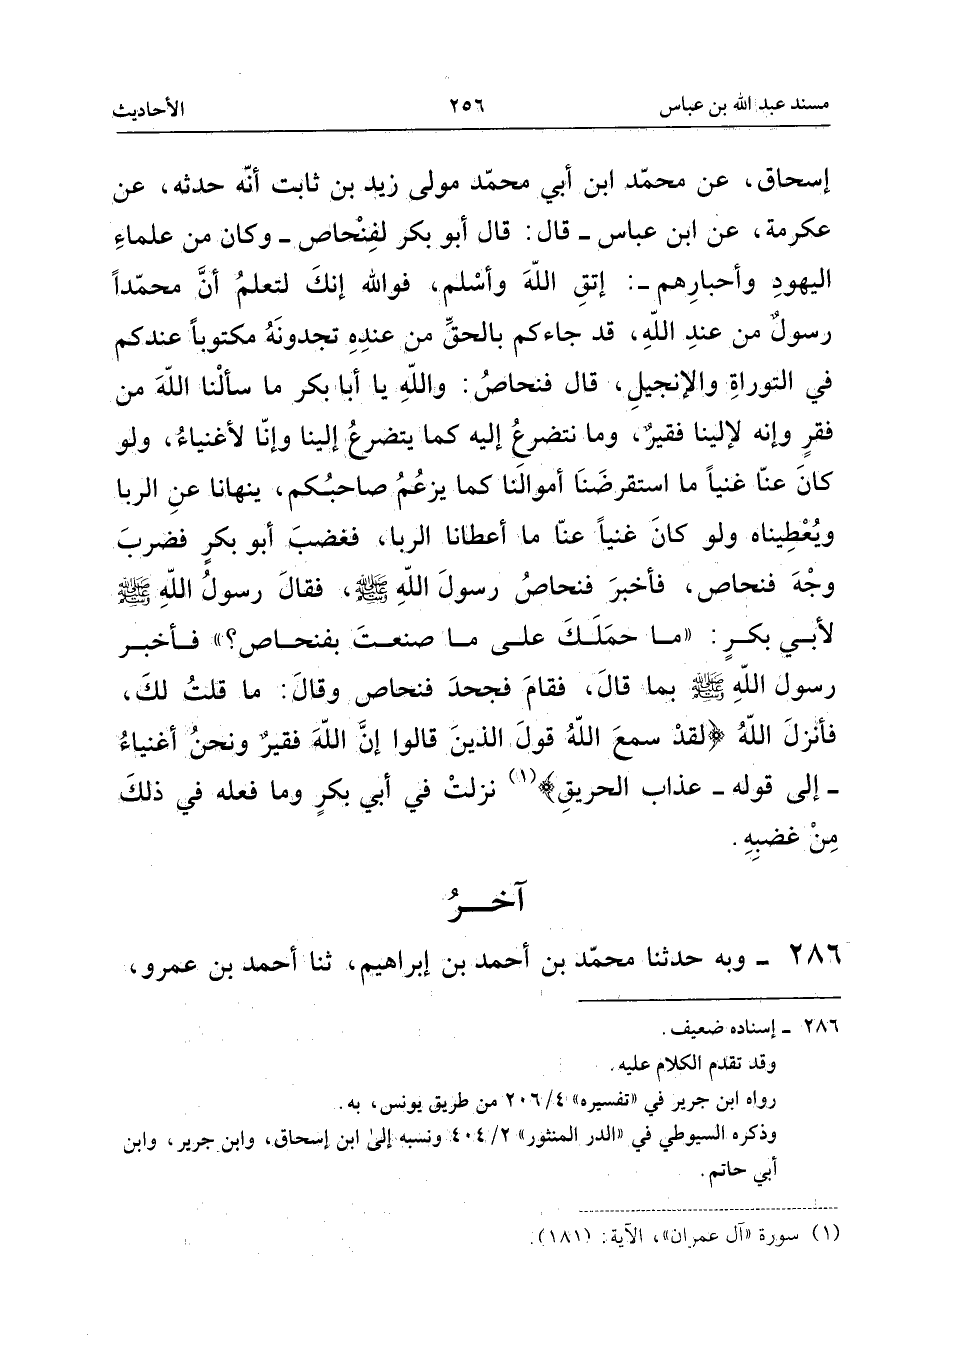 مسند عبد الله بن عباس ٢٥٦ الأحاديث
إسحاق، عن محمّد ابن أبي محمّد مولى زيد بن ثابت أنّه حدثه، عن
عكرمة، عن ابن عباس ـ قال: قال أبو بكر لفِنْحاص ـ وكان من علماءِ
اليهودِ وأحبارِهم ـ: إتقِ اللّهَ وأسْلم، فوالله إنكَ لتعلمُ أنَّ محمّداً
رسولٌ من عندِ اللّهِ، قد جاءكم بالحقِّ من عندِهِ تجدونَهُ مكتوباً عندكم
في التوراةِ والإنجيلِ، قال فنحاصُ: واللّهِ يا أبا بكر ما سألْنا اللّهَ من
فقرٍ وإنه لإلينا فقيرٌ، وما نتضرعُ إليه كما يتضرعُ إلينا وإنّا لأغنياءُ، ولو
كانَ عنّا غنياً ما استقرضَنَا أموالَنا كما يزعُمُ صاحبُكم، ينهانا عنِ الربا
ويُعْطِيناه ولو كانَ غنياً عنّا ما أعطانا الربا، فغضبَ أبو بكرٍ فضربَ
وجْهَ فنحاص، فأخبرَ فنحاصُ رسولَ اللّهِ ﷺ، فقالَ رسولُ اللّهِ ﷺ
لأبي بكرٍ: «ما حمَلَكَ على ما صنعتَ بفنحاص؟» فأخبر
رسول اللّهِ ﷺ بما قالَ، فقامَ فجحدَ فنحاص وقالَ: ما قلتُ لكَ،
فأنزلَ اللّهُ ﴿لقدْ سمعَ اللّهُ قولَ الذينَ قالوا إنَّ اللّهَ فقيرٌ ونحنُ أغنياءُ
ـ إلى قوله ـ عذاب الحريقِ﴾(١) نزلتْ في أبي بكرٍ وما فعله في ذلكَ
مِنْ غضبِهِ.
آخرُ
٢٨٦ ـ وبه حدثنا محمّد بن أحمد بن إبراهيم، ثنا أحمد بن عمرو،
٢٨٦ ـ إسناده ضعيف.
وقد تقدم الكلام عليه.
رواه ابن جرير في «تفسيره» ٢٠٦/٤ من طريق يونس، به.
وذكره السيوطي في «الدر المنثور» ٤٠٤/٢ ونسبه إلىٰ ابن إسحاق، وابن جرير، وابن
أبي حاتم.
(١) سورة «آل عمران»، الآية: (١٨١).